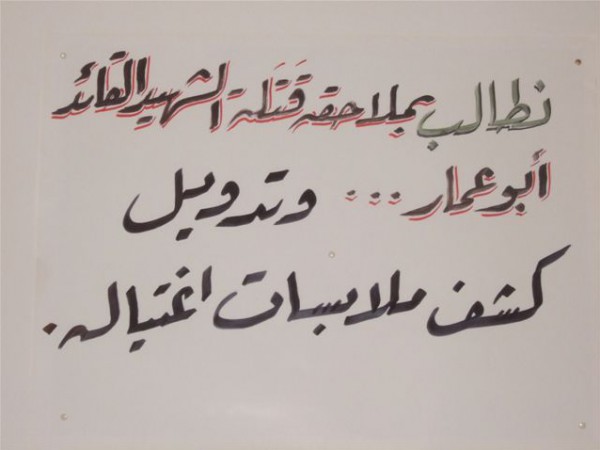 نطالب بملاحقة قَتَلة الشهيد القائد
أبو عمار ... وتدويل
كشف ملابسات اغتياله.